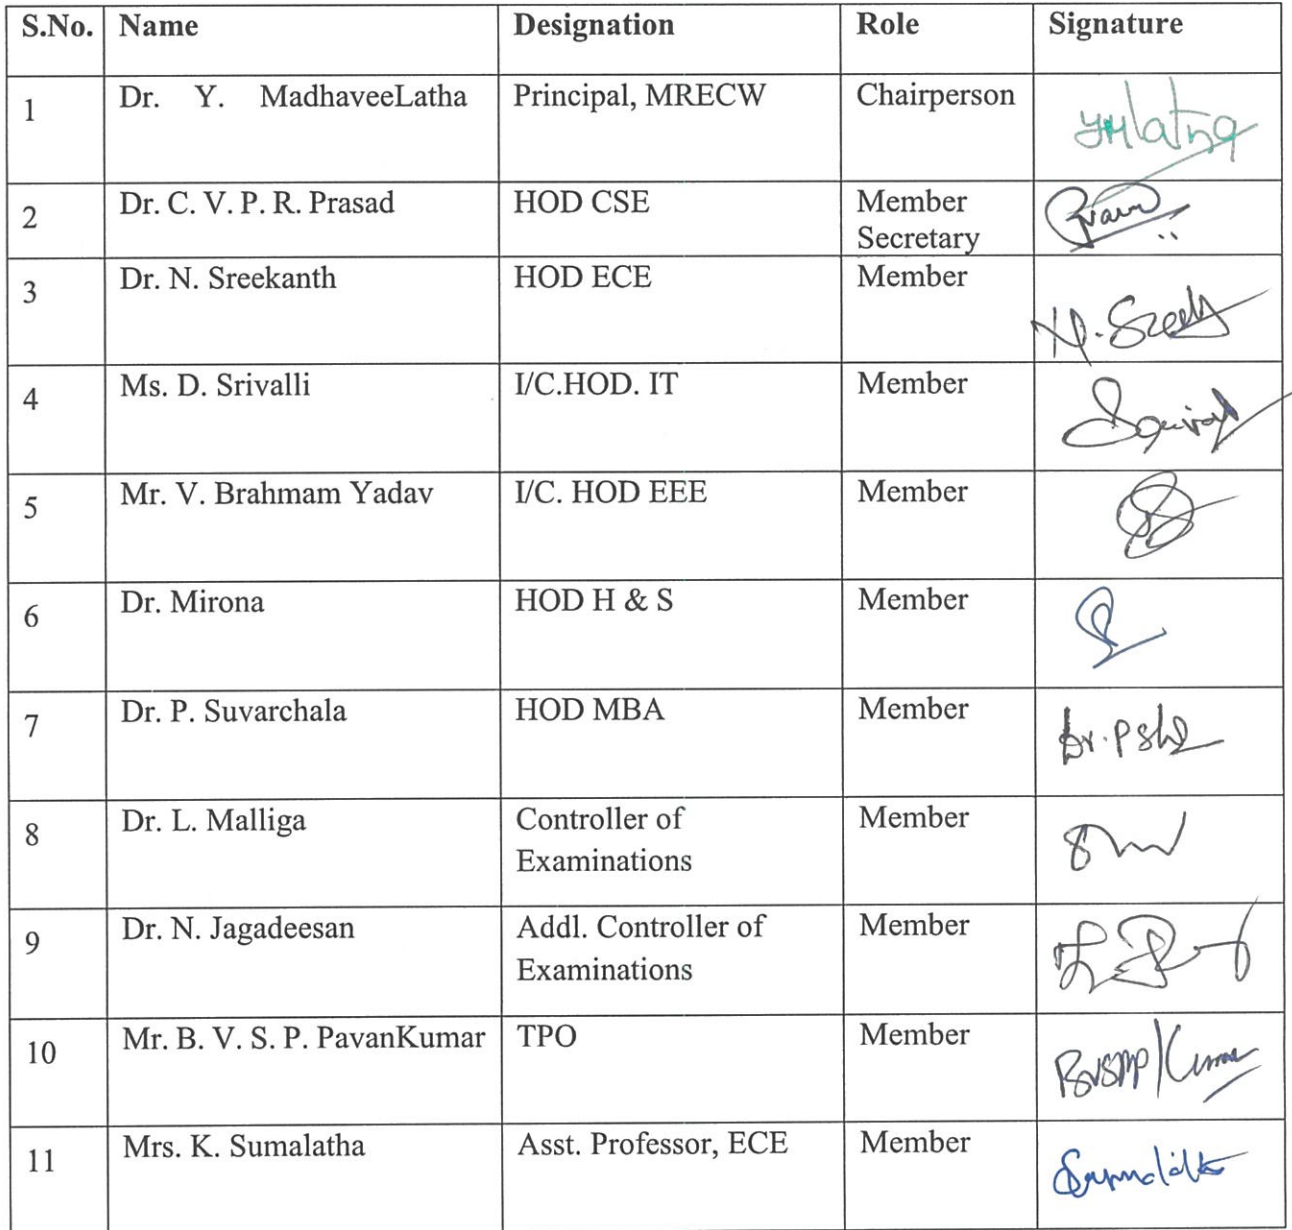 S.No. Name Designation Role Signature
1 Dr. Y. MadhaveeLatha Principal, MRECW Chairperson
2 Dr. C. V. P. R. Prasad HOD CSE Member
Secretary
3 Dr. N. Sreekanth HOD ECE Member
4 Ms. D. Srivalli I/C.HOD. IT Member
5 Mr. V. Brahmam Yadav I/C. HOD EEE Member
6 Dr. Mirona HOD H & S Member
7 Dr. P. Suvarchala HOD MBA Member
8 Dr. L. Malliga Controller of Member
Examinations
9 Dr. N. Jagadeesan Addl. Controller of Member
Examinations
10 Mr. B. V. S. P. PavanKumar TPO Member
11 Mrs. K. Sumalatha Asst. Professor, ECE Member